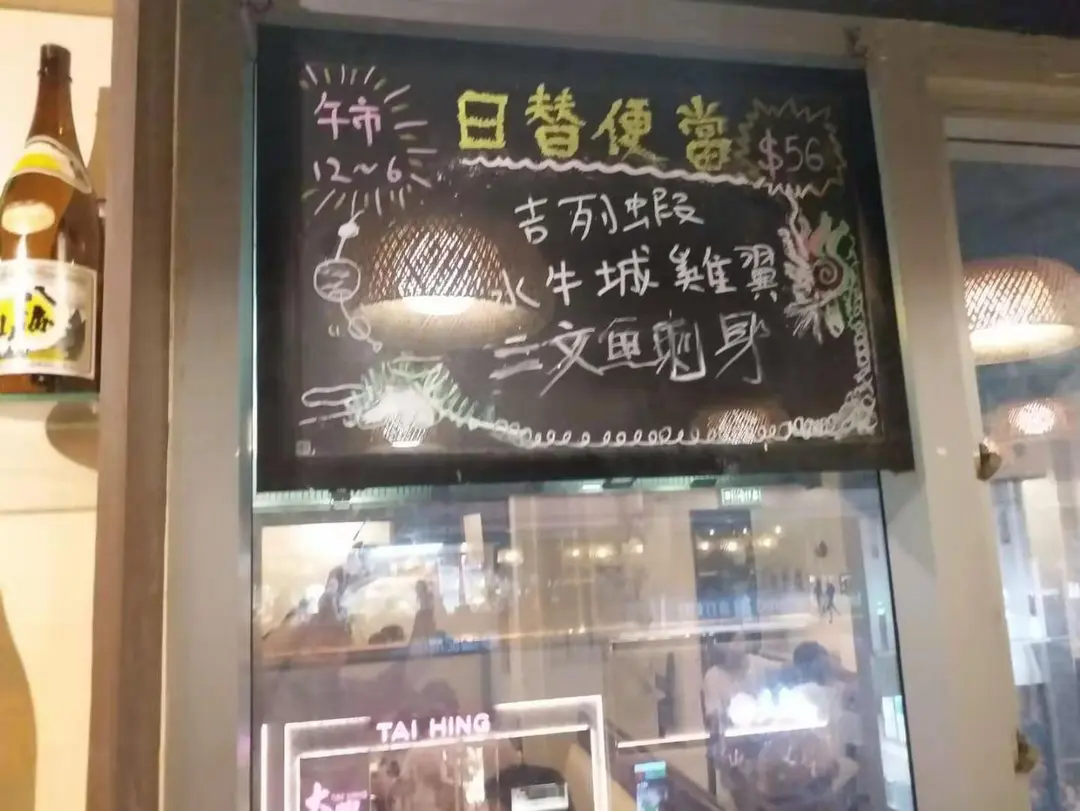 午市
12~6
日替便當
$56
吉列蝦
水牛城雞翼
三文魚刺身
八海山
TAI HING